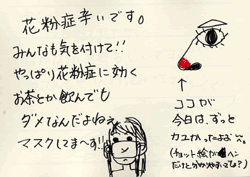 花粉症辛いです。
みんなも気を付けて!!
やっぱり花粉症に効く
お茶とか飲んでも
ダメなんだよねぇ
マスクしてま〜す!!
↑
ココが
今日は、ずっと
カユかったよぉ
(チョット絵が ヘン
だけどわかりやすいでしょ?)